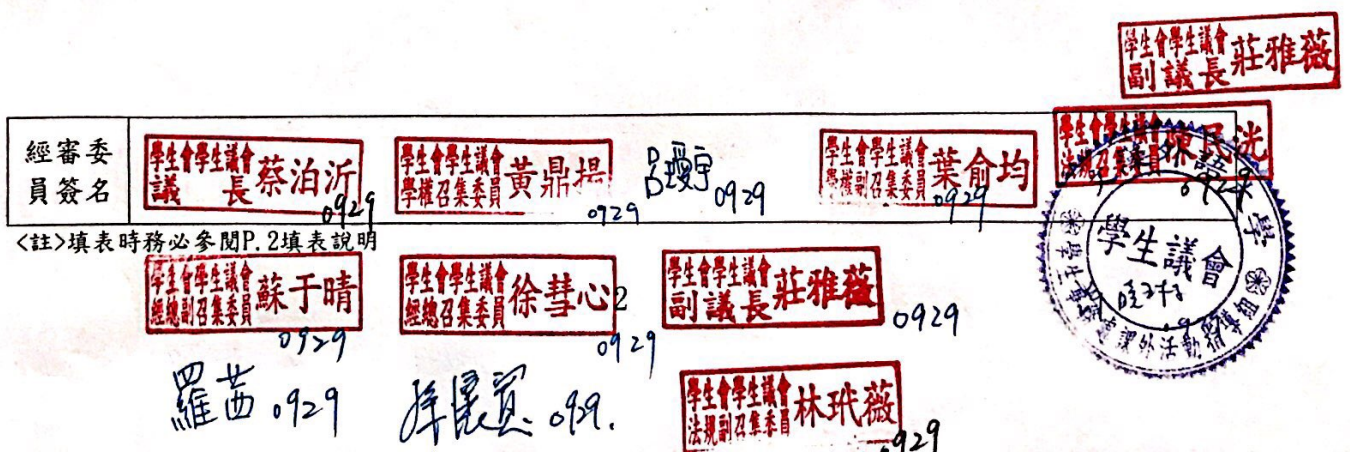 學生會學生議會
副議長莊雅薇
經審委
員簽名
學生會學生議會
議長蔡泊沂
0929
學生會學生議會
學權召集委員黃鼎揚
0929
0929
學生會學生議會
學權副召集委員葉俞均
0929
學生會學生議會
法規召集委員陳民洸
<註>填表時務必參閱P.2填表說明
學生會學生議會
經總副召集委員蘇于晴
0929
學生會學生議會
經總召集委員徐彗心
0929
2
學生會學生議會
副議長莊雅薇
0929
學生議會
課外活動指導組
羅茜 0929
學生會學生議會
法規副召集委員林玳薇
0929